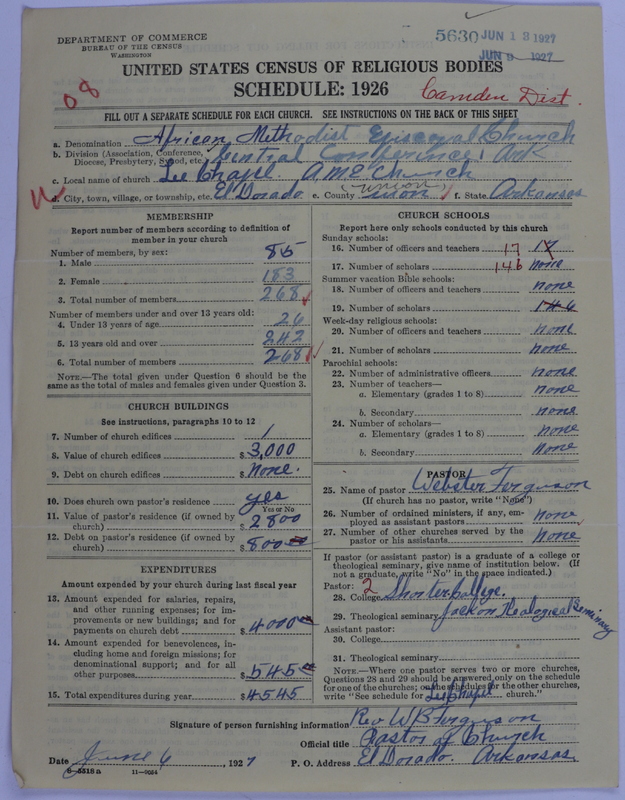 DEPARTMENT OF COMMERCE
BUREAU OF THE CENSUS
WASHINGTON
5630 JUN 13 1927
JUN 9 1927
UNITED STATES CENSUS OF RELIGIOUS BODIES
SCHEDULE: 1926
08
Camden Dist
FILL OUT A SEPARATE SCHEDULE FOR EACH CHURCH. SEE INSTRUCTIONS ON THE BACK OF THIS SHEET
a. Denomination African Methodist Episcopal Church
b. Division (Association, Conference, Diocese, Presbytery, Synod, etc.) Central Conference, Ark
c. Local name of church Lee Chapel A.M.E Church
d. City, town, village, or township, etc. El Dorado e. County (union) union f. State Arkansas
MEMBERSHIP
Report number of members according to definition of
member in your church
Number of members, by sex:
1. Male 85
2. Female 183
3. Total number of members 268
Number of members under and over 13 years old:
4. Under 13 years of age 26
5. 13 years old and over 242
6. Total number of members 268
NOTE.—The total given under Question 6 should be
the same as the total of males and females given under Question 3.
CHURCH BUILDINGS
See instructions, paragraphs 10 to 12
7. Number of church edifices 1
8. Value of church edifices $ 3,000
9. Debt on church edifices $ None.
10. Does church own pastor's residence yes
Yes or No
11. Value of pastor's residence (if owned by
church) $ 2800
12. Debt on pastor's residence (if owned by
church) $ 800
EXPENDITURES
Amount expended by your church during last fiscal year
13. Amount expended for salaries, repairs,
and other running expenses; for im-
provements or new buildings; and for
payments on church debt $ 4000
14. Amount expended for benevolences, in-
cluding home and foreign missions; for
denominational support; and for all
other purposes $ 545
15. Total expenditures during year $ 4545
CHURCH SCHOOLS
Report here only schools conducted by this church
Sunday schools:
16. Number of officers and teachers 17 17
17. Number of scholars 146 none
Summer vacation Bible schools:
18. Number of officers and teachers none
19. Number of scholars 146
Week-day religious schools:
20. Number of officers and teachers none
21. Number of scholars none
Parochial schools:
22. Number of administrative officers none
23. Number of teachers—
a. Elementary (grades 1 to 8) none
b. Secondary none
24. Number of scholars—
a. Elementary (grades 1 to 8) none
b. Secondary None
PASTOR
25. Name of pastor Webster Ferguson
(If church has no pastor, write "None")
26. Number of ordained ministers, if any, em-
ployed as assistant pastors none
27. Number of other churches served by the
pastor or his assistants None
If pastor (or assistant pastor) is a graduate of a college or
theological seminary, give name of institution below. (If
not a graduate, write "No" in the space indicated.)
Pastor: 2
28. College Shorter College.
29. Theological seminary Jackson Theological Seminary
Assistant pastor:
30. College
31. Theological seminary
NOTE.—Where one pastor serves two or more churches,
Questions 28 and 29 should be answered only on the schedule
for one of the churches; on the schedules for the other churches,
write "See schedule for Lee Chapel church."
Signature of person furnishing information Rev W B Ferguson
Official title Pastor of Church
Date June 6, 1927 P. O. Address El Dorado. Arkansas.
8-5518a 11-9054